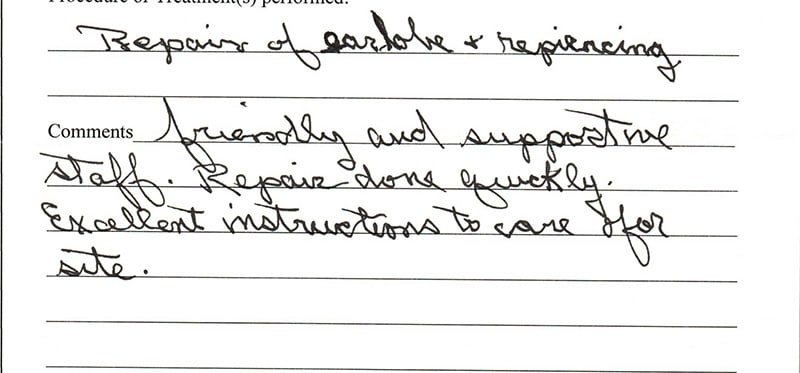 Procedure or Treatment(s) performed:
Repair of earlobe + repiercing
Comments friendly and supportive
staff. Repair done quickly.
Excellent instructions to care for
site.